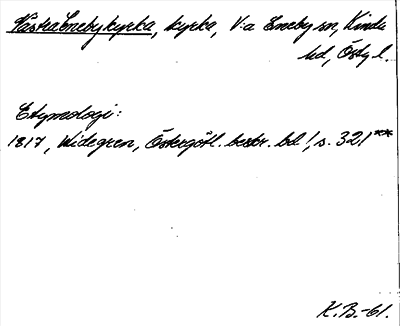 Västra Eneby kyrka, kyrka, V:a Eneby sn, Kinda
hd, Östg l.
Etymologi:
1817, Widegren, Östergötl. beskr. bd 1, s. 321 **
K.B.-61.